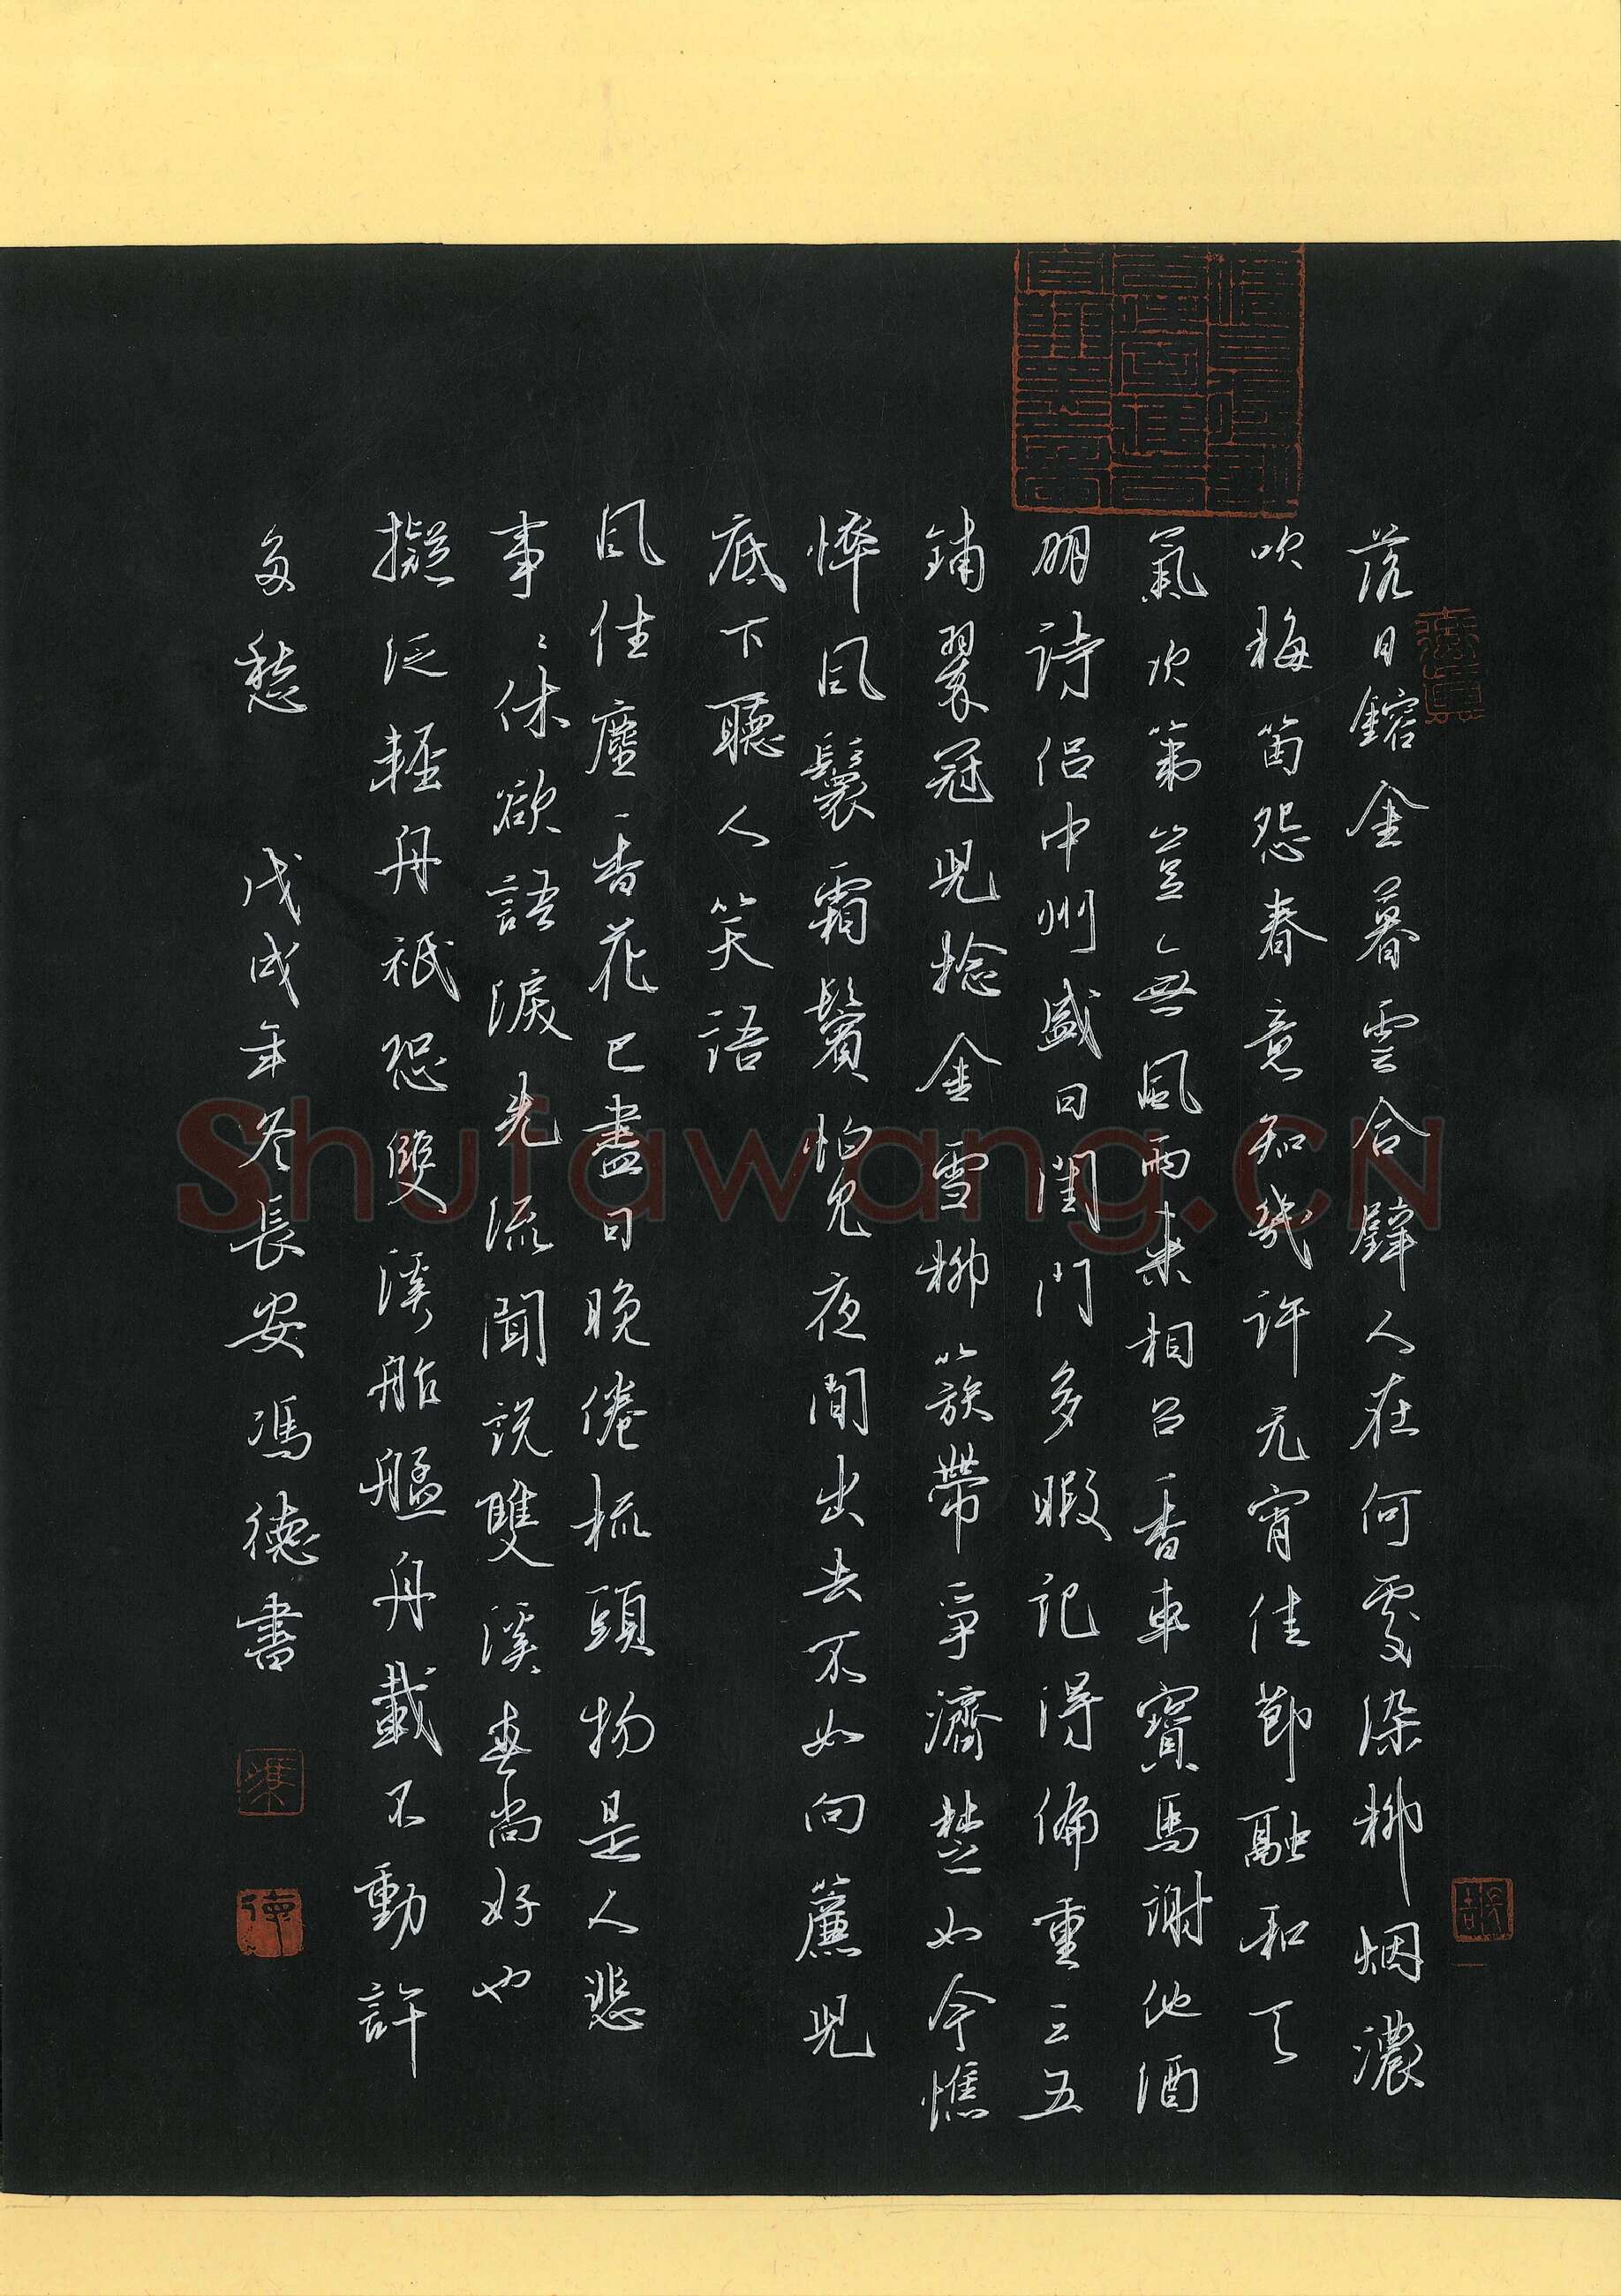 落日鎔金暮雲合璧人在何處染柳烟濃
吹梅笛怨春意知幾許元宵佳節融和天
氣次第豈無風雨來相召香車寶馬謝他酒
朋詩侶中州盛日閨門多暇記得偏重三五
鋪翠冠兒捻金雪柳簇帶爭濟楚如今憔
悴風鬟霜鬢怕見夜間出去不如向簾兒
底下聽人笑語
風住塵香花已盡日晚倦梳頭物是人悲
事〻休欲語淚先流聞說雙溪春尚好也
擬泛輕舟祇恐雙溪舴艋舟載不動許
多愁 戊戌年冬長安馮德書
Shufawang.CN